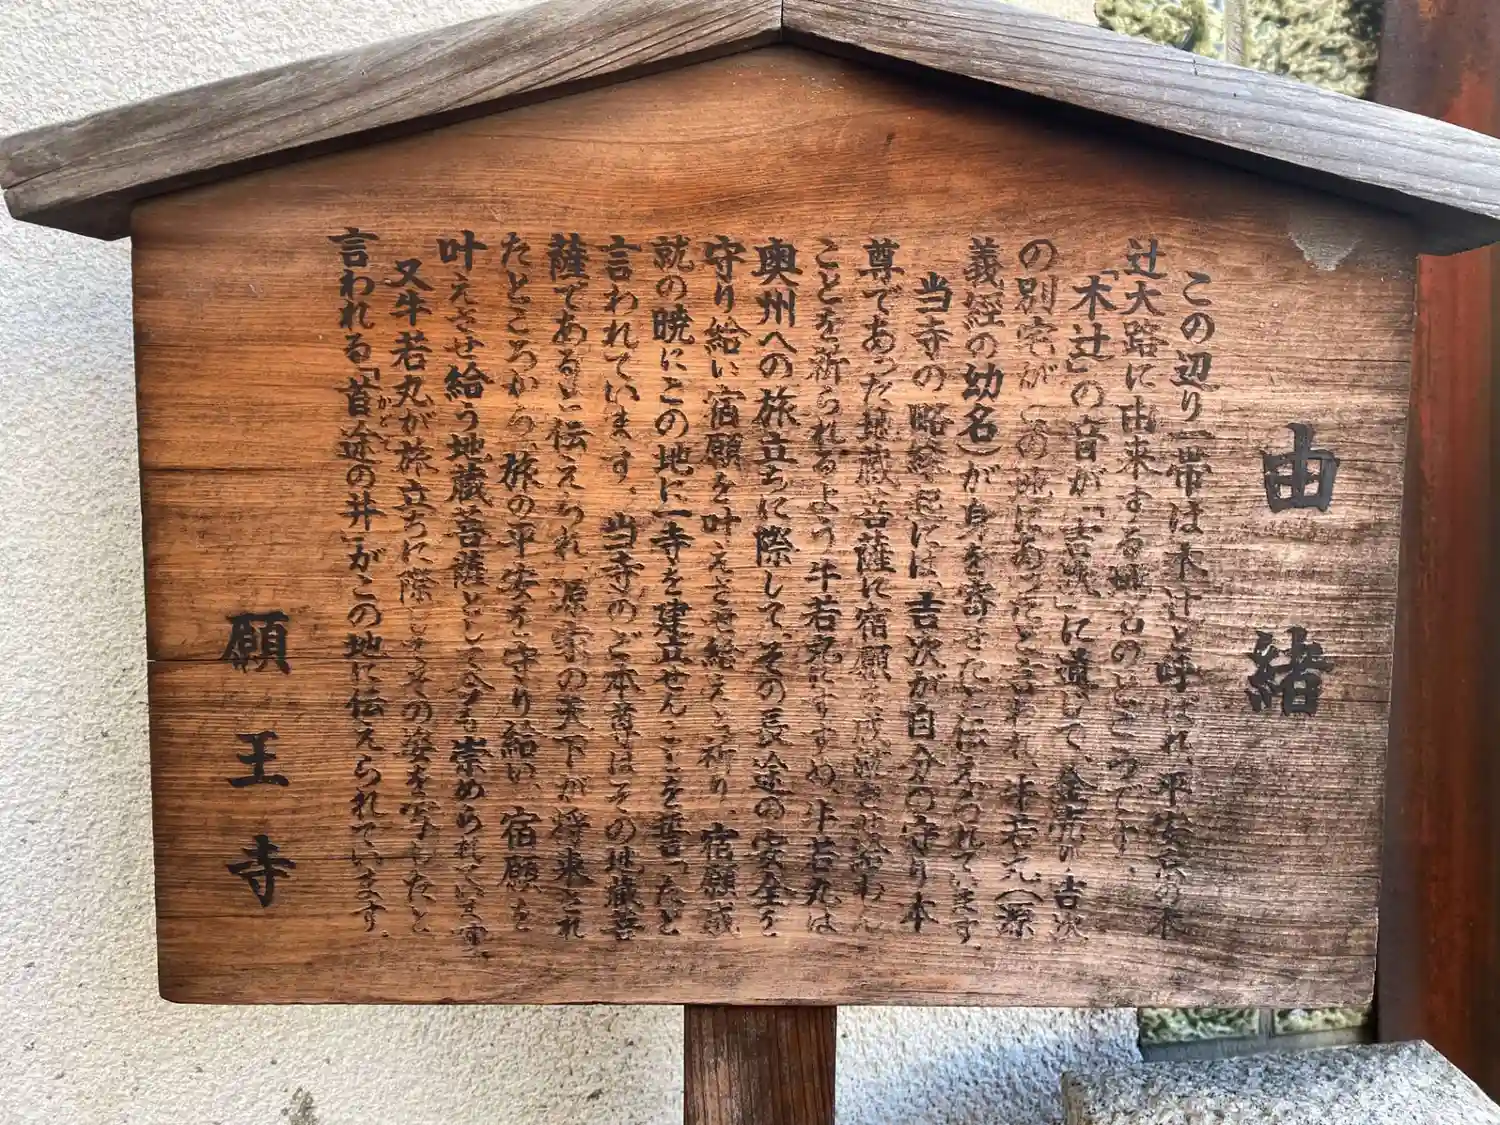 由緒
この辺り一帯は木辻と呼ばれ、平安京の木
辻大路に由来する地名のところです。
「木辻」の音が「吉次」に通じて、金売り吉次
の別宅がこの地にあったと言われ、牛若丸(源
義經の幼名)が身を寄せたと伝えられています。
当寺の略縁起には、吉次が自分の守り本
尊であった地蔵菩薩に宿願を成就せ給わん
ことを祈られるよう牛若丸にすすめ、牛若丸は
奥州への旅立ちに際して、その長途の安全を
守り給い宿願を叶えさせ給えと祈り、宿願成
就の暁にこの地に一寺を建立せんことを誓ったと
言われています。当寺のご本尊はその地蔵菩
薩であると伝えられ、源家の天下が将来され
たところから、旅の平安を守り給い、宿願を
叶えさせ給う地蔵菩薩として今も崇められています。
又牛若丸が旅立ちに際しその姿を写したと
言われる「首途の井」がこの地に伝えられています。
かどで
願王寺